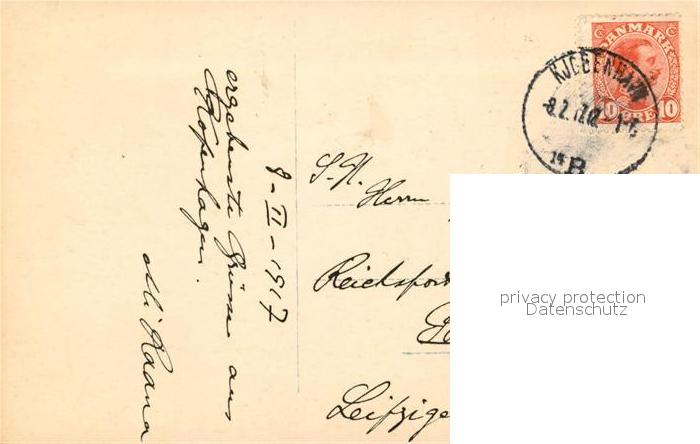 DANMARK
10 ØRE 10
KJØBENHAVN
8.2.17.
B
8-II-1917
ergebenste Grüsse aus
Kopenhagen.
S. H.
Herrn
Reichs
Leipzige
privacy protection
Datenschutz